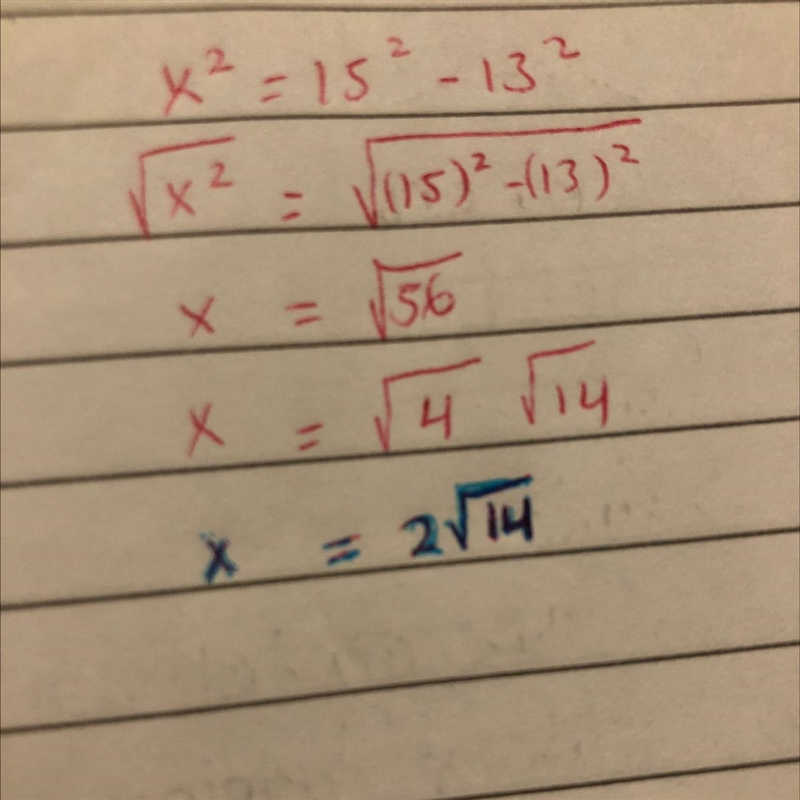 x² = 15² - 13²
√x² = √(15)² - (13)²
x = √56
x = √4 √14
x = 2√14